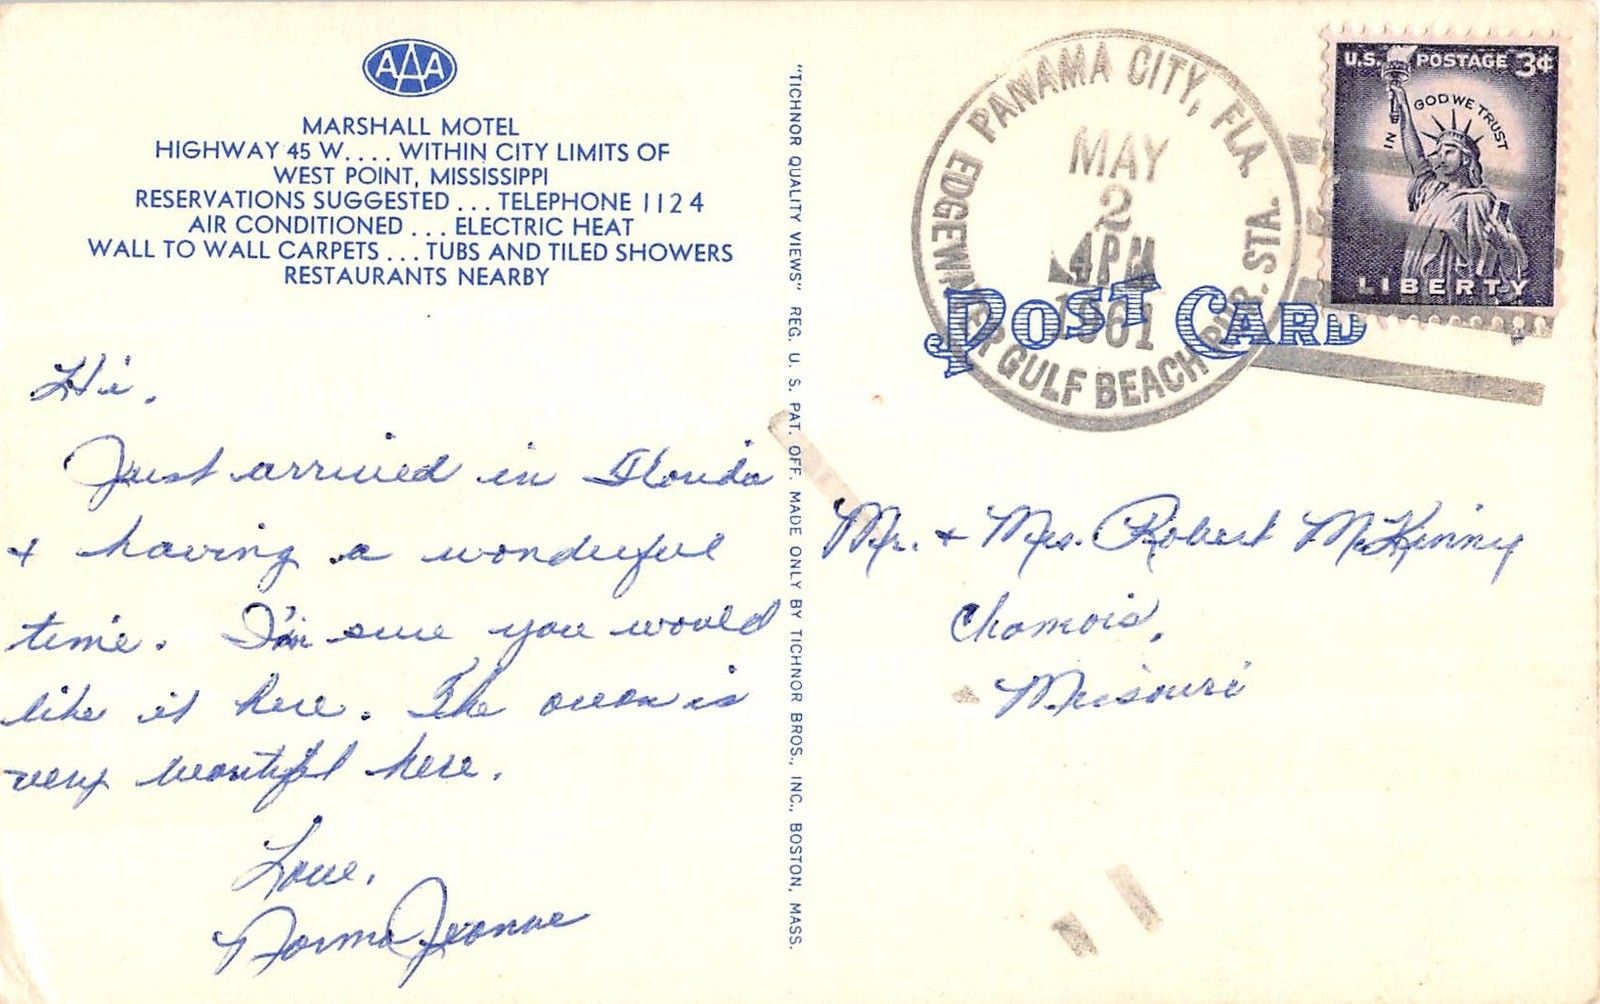 AAA
MARSHALL MOTEL
HIGHWAY 45 W.... WITHIN CITY LIMITS OF
WEST POINT, MISSISSIPPI
RESERVATIONS SUGGESTED ... TELEPHONE 1124
AIR CONDITIONED ... ELECTRIC HEAT
WALL TO WALL CARPETS ... TUBS AND TILED SHOWERS
RESTAURANTS NEARBY
Hi,
Just arrived in Florida
+ having a wonderful
time. I'm sure you would
like it here. The ocean is
very beautiful here.
Love,
Norma Jeanne
"TICHNOR QUALITY VIEWS" REG. U. S. PAT. OFF. MADE ONLY BY TICHNOR BROS., INC., BOSTON, MASS.
PANAMA CITY, FLA.
EDGEWATER GULF BEACH RUR. STA.
MAY
2
4PM
1961
POST CARD
U.S. POSTAGE 3¢
IN GOD WE TRUST
LIBERTY
Mr. + Mrs. Robert McKinny
Chamois,
Missouri